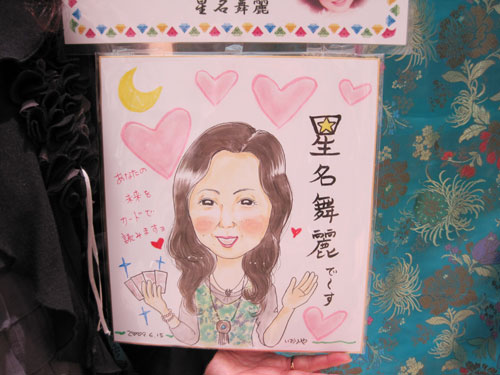 星名舞麗
星名舞麗で〜す
あなたの
未来を
カードで
読みます。
2009.6.18